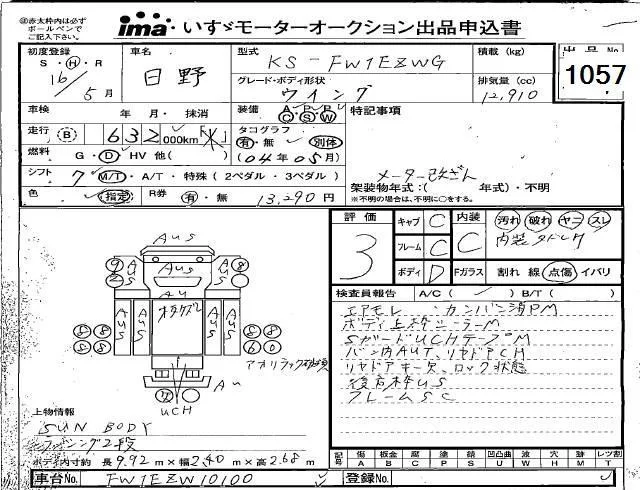 ㊟赤太枠内は必ず
ボールペンで
ご記入下さい。
ima いすゞモーターオークション出品申込書
初度登録 車名 型式 積載 (kg) 出品No
S・H・R 日野 KS-FW1EZWG
16/5月 グレード・ボディ形状 排気量 (cc) 1057
ウイング 12,910
車検 年 月・抹消 装備 A P P C S W 特記事項
走行 B 632000km 米 タコグラフ
有・無 別体
燃料 G・D・HV 他( ) (04年05月)
シフト 7 M/T・A/T・特殊(2ペダル・3ペダル) メーター改ざん
架装物年式:( 年式)・不明
色 (指定) R券 有・無 13,290円 ※不明の場合は、不明に○をする。
評価 キャブ C 内装 汚れ 破れ ヤニ スレ
3 フレーム C C 内装タドレク
ボディ D Fガラス 割れ 線 点傷 イバリ
検査員報告 A/C( ✓ ) B/T( )
エアモレ カンバン消PM
ボディ上枠ミラーM
SガードUCHテープM
バン内AUT、リヤドアCH
リヤドアキー欠、ロック状態
後方枠US
フレームSC
AUS
AUS
AU
AUS
AUS
オタクズレ
アオリラック破損
AU
UCH
上物情報
SUN BODY
ラッシング2段
ボディ内寸約 長9.92m×幅2.40m×高2.68m
記号 傷 板金 腐 塗 錆 凹凸曲 波 穴 跡 レツ割
A B C P S U W H M T
車台No. FW1EZW10100 登録No.